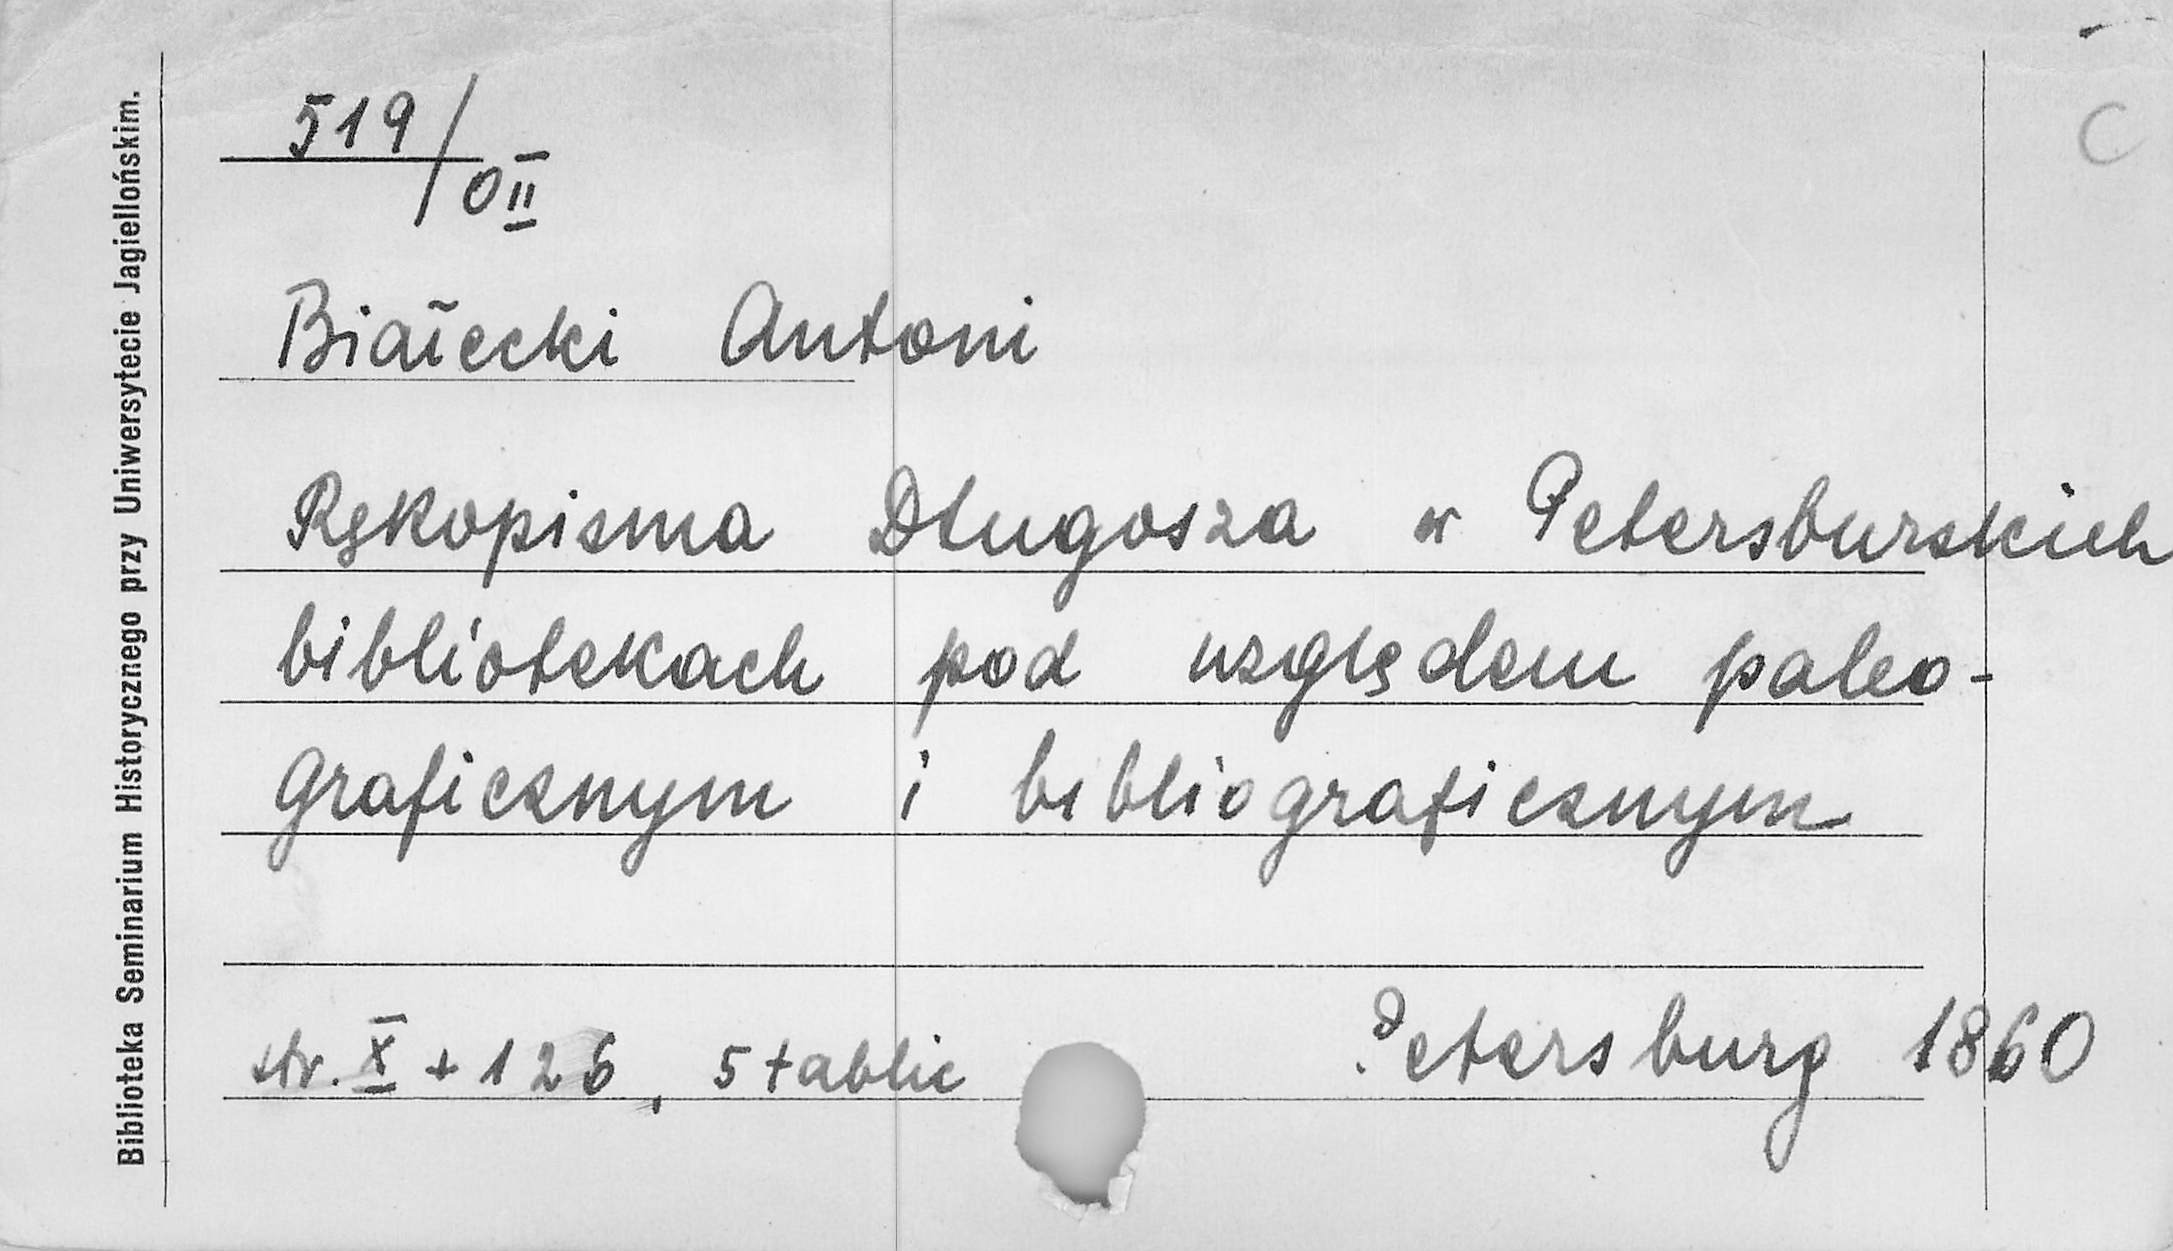 Biblioteka Seminarium Historycznego przy Uniwersytecie Jagiellońskim.
C
519/OII
Białecki Antoni
Rękopisma Długosza w Petersburskich
bibliotekach pod względem paleo-
graficznym i bibliograficznym
str. X + 126, 5 tablic
Petersburg 1860